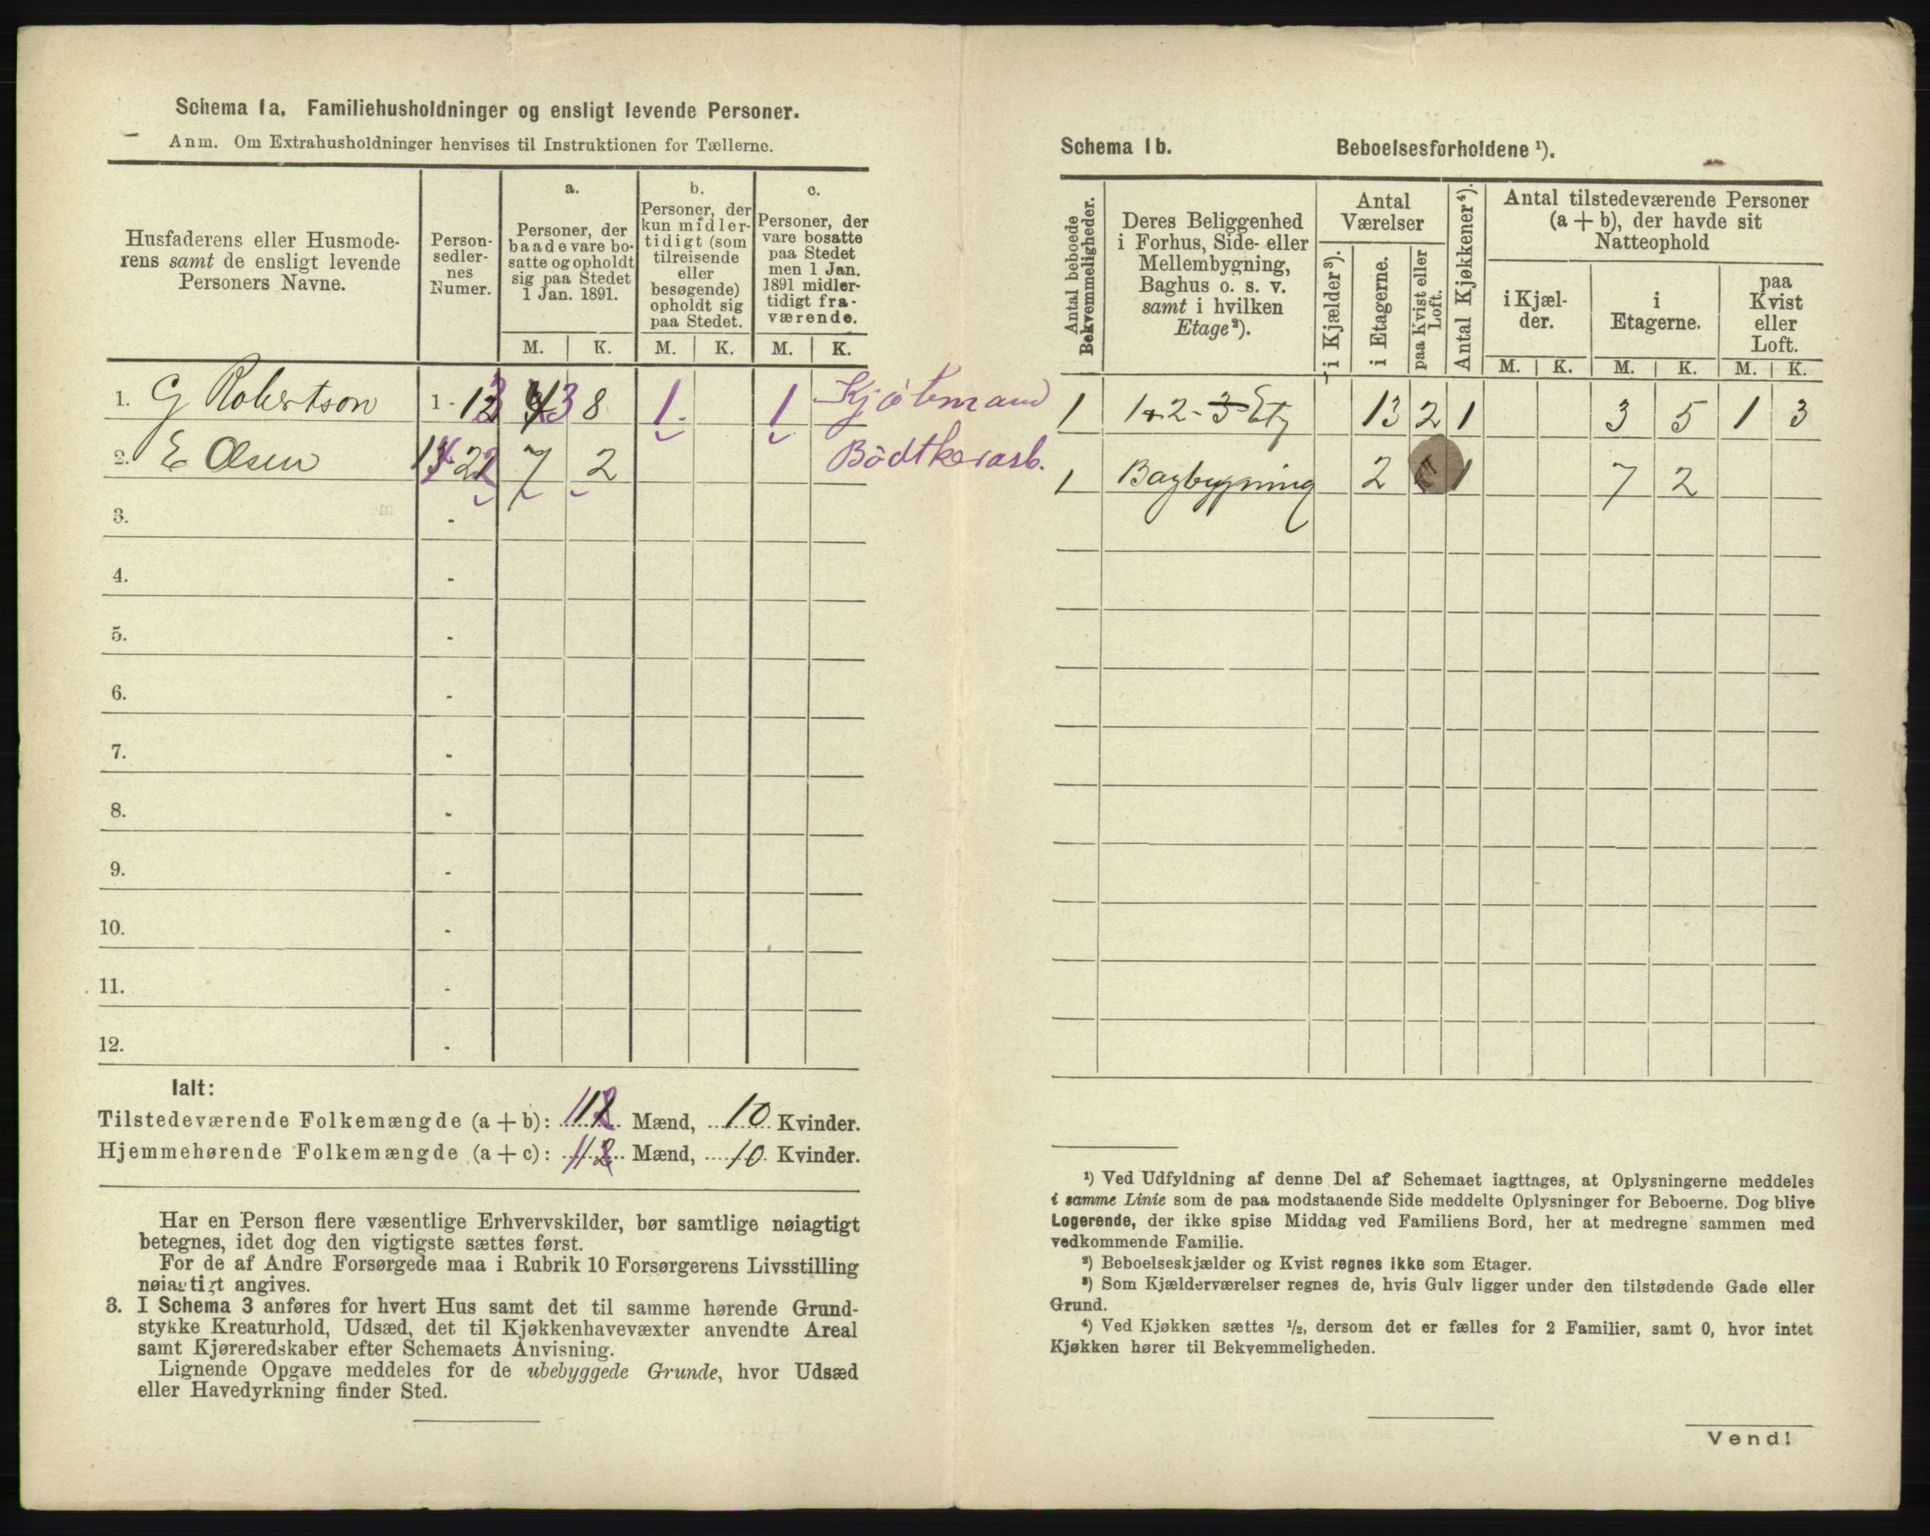 Schema 1a. Familiehusholdninger og ensligt levende Personer.
Anm. Om Extrahusholdninger henvises til Instruktionen for Tællerne.
Husfaderens eller Husmode-
rens samt de ensligt levende
Personers Navne.
Person-
sedler-
nes
Numer.
a.
Personer, der
baade vare bo-
satte og opholdt
sig paa Stedet
1 Jan. 1891.
b.
Personer, der
kun midler-
tidigt (som
tilreisende
eller
besøgende)
opholdt sig
paa Stedet.
c.
Personer, der
vare bosatte
paa Stedet
men 1 Jan.
1891 midler-
tidigt fra-
værende.
M. K. M. K. M. K.
1. G Robertson 1 - 13 3 8 1 1 Kjøbmand
2. E Olsen 14-22 7 2 Bödtkerarb.
3. -
4. -
5. -
6. -
7. -
8. -
9. -
10. -
11. -
12. -
Ialt:
Tilstedeværende Folkemængde (a + b): 11 Mænd, 10 Kvinder.
Hjemmehørende Folkemængde (a + c): 11 Mænd, 10 Kvinder.
Har en Person flere væsentlige Erhvervskilder, bør samtlige nøiagtigt
betegnes, idet dog den vigtigste sættes først.
For de af Andre Forsørgede maa i Rubrik 10 Forsørgerens Livsstilling
nøiagtigt angives.
3. I Schema 3 anføres for hvert Hus samt det til samme hørende Grund-
stykke Kreaturhold, Udsæd, det til Kjøkkenhavevæxter anvendte Areal
samt Kjøreredskaber efter Schemaets Anvisning.
Lignende Opgave meddeles for de ubebyggede Grunde, hvor Udsæd
eller Havedyrkning finder Sted.
Schema 1b. Beboelsesforholdene ¹).
Antal beboede
Bekvemmeligheder.
Deres Beliggenhed
i Forhus, Side- eller
Mellembygning,
Baghus o. s. v.
samt i hvilken
Etage²).
Antal
Værelser
i Kjælder³).
i Etagerne.
paa Kvist eller
Loft.
Antal Kjøkkener⁴).
Antal tilstedeværende Personer
(a + b), der havde sit
Natteophold
i Kjæl-
der.
i
Etagerne.
paa
Kvist
eller
Loft.
M. K. M. K. M. K.
1 1 + 2 - 3 Etg 13 2 1 3 5 1 3
1 Bagbygning 2 1 7 2
¹) Ved Udfyldning af denne Del af Schemaet iagttages, at Oplysningerne meddeles
i samme Linie som de paa modstaaende Side meddelte Oplysninger for Beboerne. Dog blive
Logerende, der ikke spise Middag ved Familiens Bord, her at medregne sammen med
vedkommende Familie.
²) Beboelseskjælder og Kvist regnes ikke som Etager.
³) Som Kjælderværelser regnes de, hvis Gulv ligger under den tilstødende Gade eller
Grund.
⁴) Ved Kjøkken sættes ½, dersom det er fælles for 2 Familier, samt 0, hvor intet
Kjøkken hører til Bekvemmeligheden.
Vend!